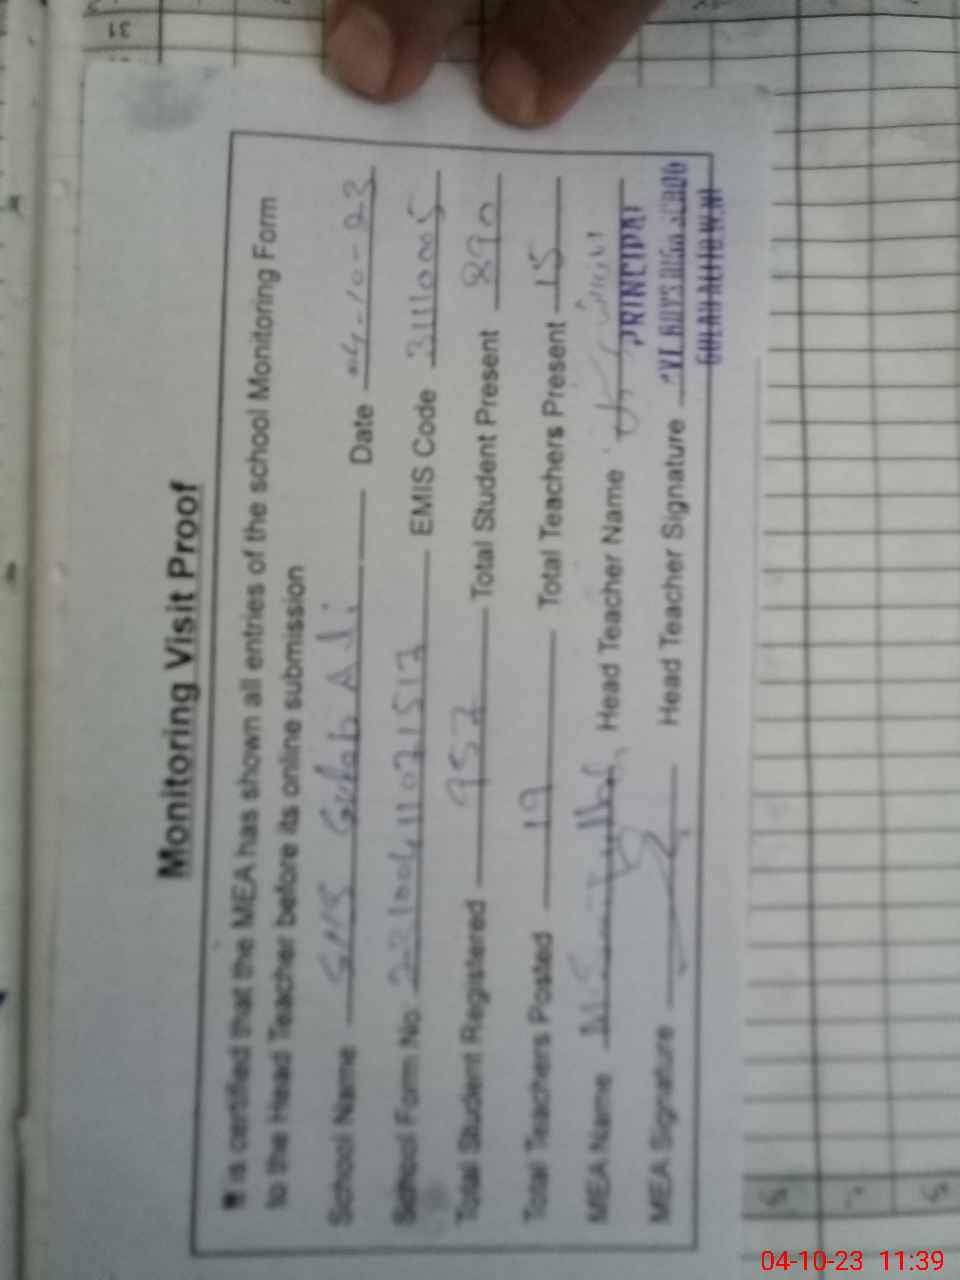 31
Monitoring Visit Proof
It is certified that the MEA has shown all entries of the school Monitoring Form
to the Head Teacher before its online submission
School Name GHS Gulab Ali Date 04-10-23
School Form No. EMIS Code 31110005
Total Student Registered 957 Total Student Present 890
Total Teachers Posted 19 Total Teachers Present 15
MEA Name Head Teacher Name
PRINCIPAL
MEA Signature Head Teacher Signature
04-10-23 11:39